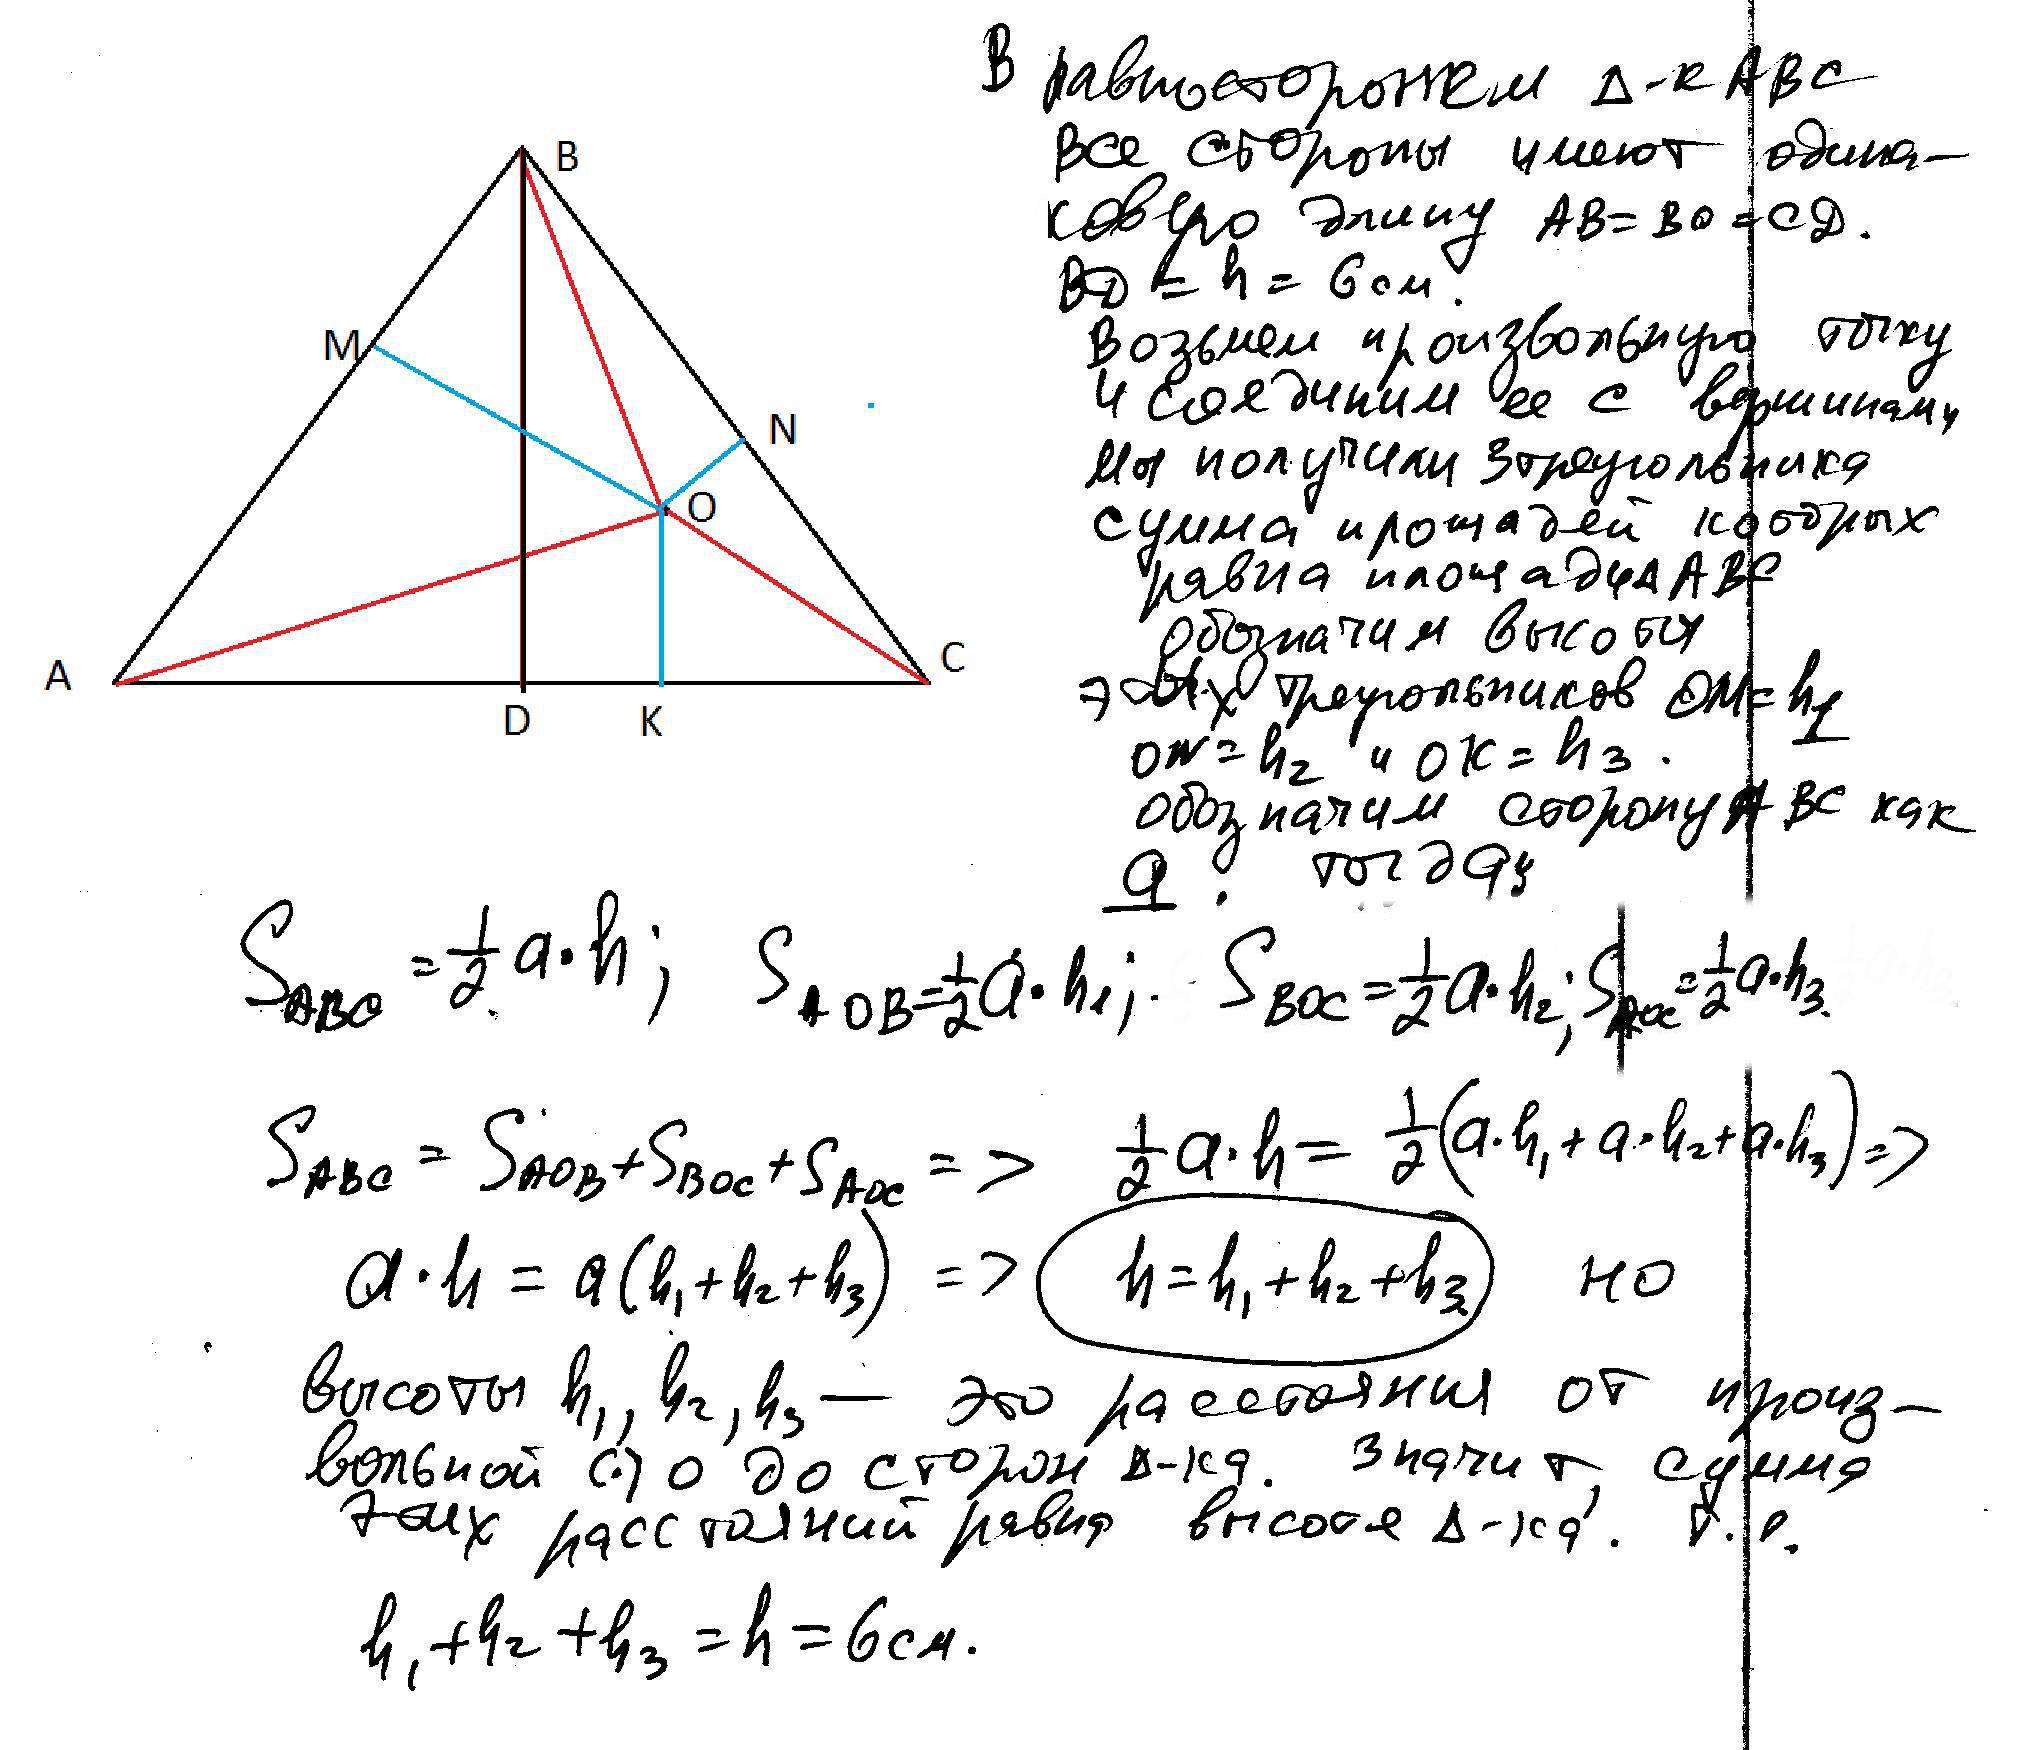 B
M
N
O
A
C
D
K
В равностороннем Δ-к ABC
все стороны имеют одина-
ковую длину AB = BD = CD.
BD = h = 6 см.
Возьмем произвольную точку
и соединим ее с вершинами,
мы получили 3 треугольника
сумма площадей которых
равна площади Δ ABC
обозначим высоты
этих треугольников OM = h1
ON = h2 и OK = h3.
обозначим сторону ABC как
a. тогда;
S ABC = 1/2 a·h; S AOB = 1/2 a·h1; S BOC = 1/2 a·h2; S AOC = 1/2 a·h3.
S ABC = S AOB + S BOC + S AOC => 1/2 a·h = 1/2 (a·h1 + a·h2 + a·h3) =>
a·h = a(h1 + h2 + h3) => h = h1 + h2 + h3 но
высоты h1, h2, h3 — это расстояния от произ-
вольной (·) O до сторон Δ-ка. Значит, сумма
этих расстояний равна высоте Δ-ка. т.е.
h1 + h2 + h3 = h = 6 см.